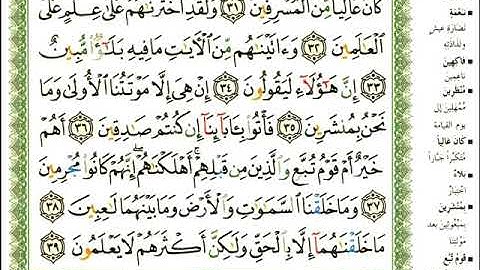 كَانَ عَالِيًا مِّنَ الْمُسْرِفِينَ ٣١ وَلَقَدِ اخْتَرْنَاهُمْ عَلَىٰ عِلْمٍ عَلَى
الْعَالَمِينَ ٣٢ وَءَاتَيْنَاهُم مِّنَ الْآيَاتِ مَا فِيهِ بَلَاءٌ مُّبِينٌ
٣٣ إِنَّ هَٰؤُلَاءِ لَيَقُولُونَ ٣٤ إِنْ هِيَ إِلَّا مَوْتَتُنَا الْأُولَىٰ وَمَا
نَحْنُ بِمُنشَرِينَ ٣٥ فَأْتُوا بِآبَائِنَا إِن كُنتُمْ صَادِقِينَ ٣٦ أَهُمْ
خَيْرٌ أَمْ قَوْمُ تُبَّعٍ وَالَّذِينَ مِن قَبْلِهِمْ أَهْلَكْنَاهُمْ إِنَّهُمْ كَانُوا مُجْرِمِينَ
٣٧ وَمَا خَلَقْنَا السَّمَاوَاتِ وَالْأَرْضَ وَمَا بَيْنَهُمَا لَاعِبِينَ ٣٨
مَا خَلَقْنَاهُمَا إِلَّا بِالْحَقِّ وَلَٰكِنَّ أَكْثَرَهُمْ لَا يَعْلَمُونَ ٣٩
نَعْمَةٍ
نَضَارَةِ عَيْشٍ
وَلَذَاذَتِهِ
فَاكِهِينَ
نَاعِمِينَ
مُنْظَرِينَ
مُمْهَلِينَ إِلَى
يوم القيامة
كَانَ عَالِيًا
مُتَكَبِّرًا جَبَّارًا
بَلَاءٌ
اخْتِبَارٌ
بِمُنْشَرِينَ
بِمَبْعُوثِينَ بعد
مَوْتَتِنَا
قَوْمُ تُبَّعٍ